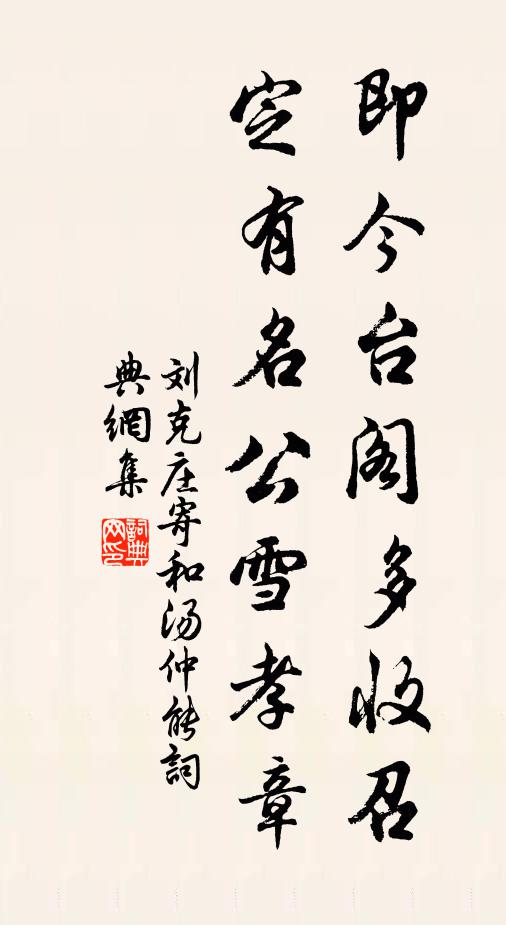 即今台阁多收召
定有名公雪孝章
刘克庄寄和汤仲能詞
典網集
詞典網印